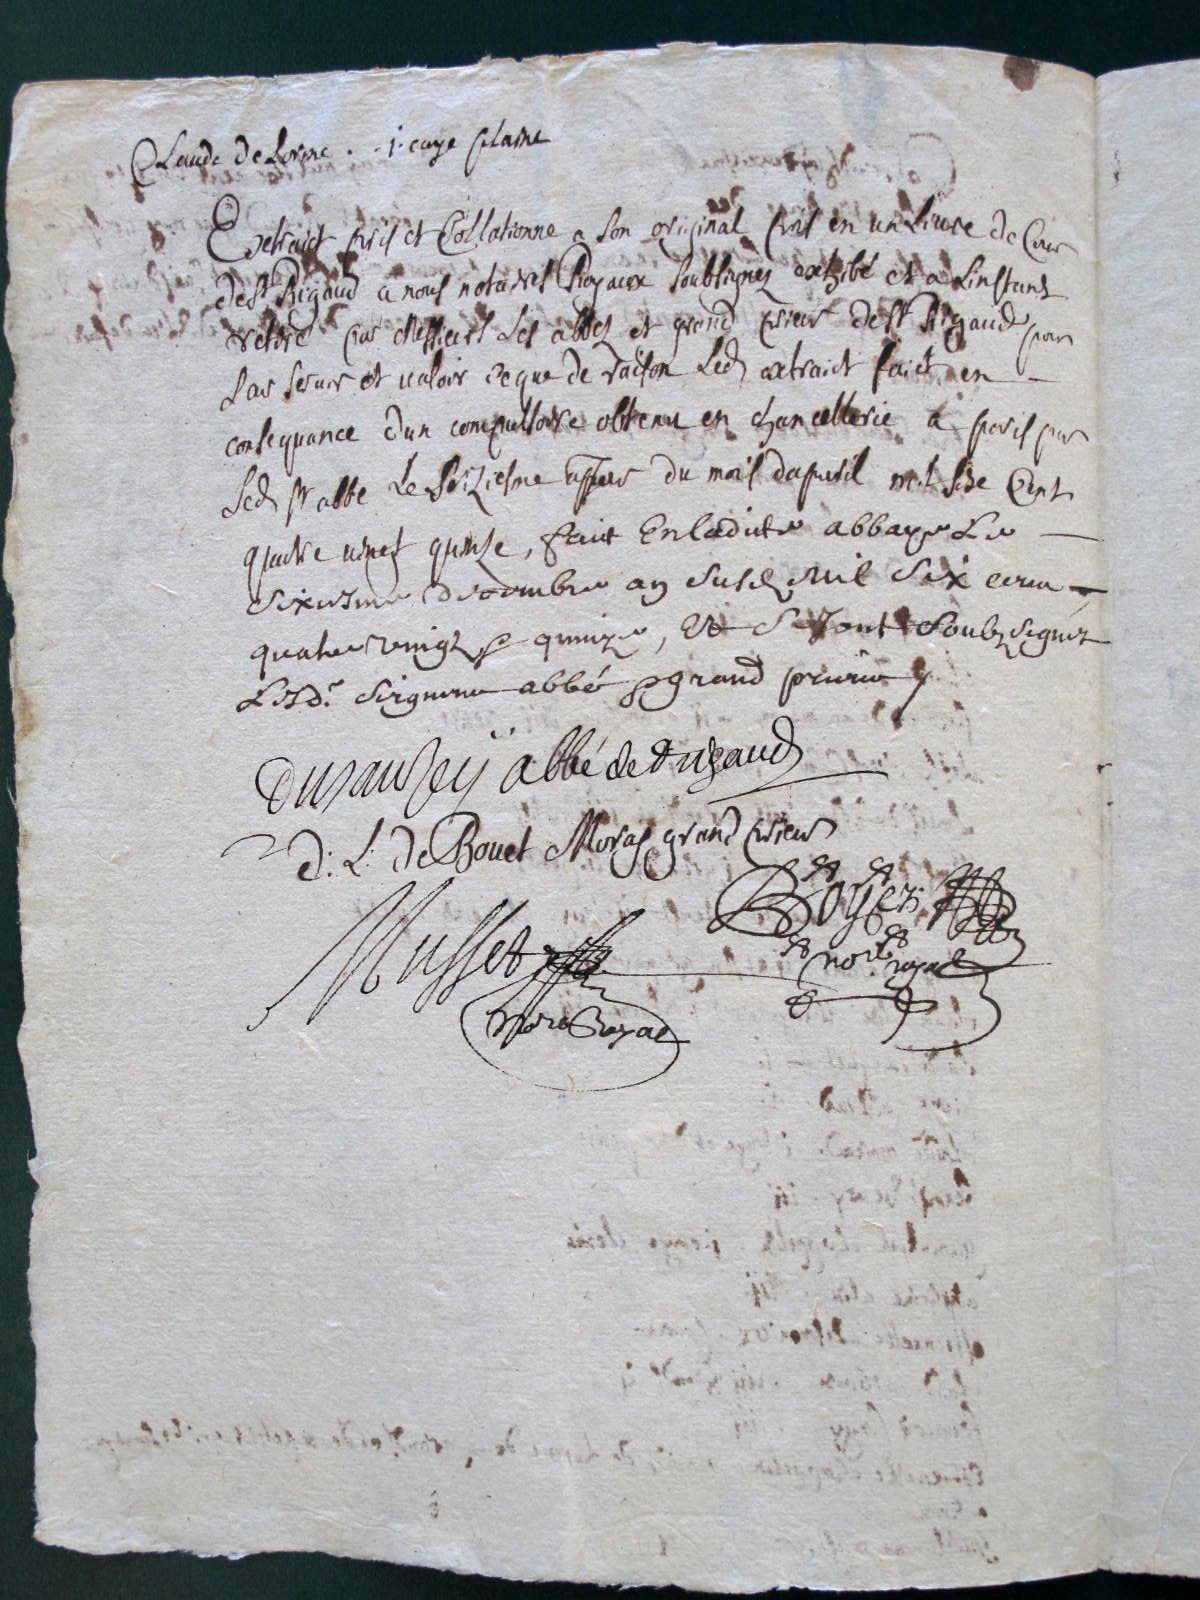 Claude de Lorme . . j. coupe plaine
Extraict pris et Collationne a son original pris en un Livre de Cuir
de St Rigaud a nous notaires Royaux soubsignez exhibé et a L'instant
retiré par Messieurs Les abbez et grand prieur de St Rigaud pour
Leur servir et valoir ce que de raison Led extraict faict en
consequance dun compulsoire obtenu en chancellerie a paris par
Led sr abbé Le seiziesme jour du mois dapvril mil size Cent
quatre vingt quinze, faict En ladicte abbaye Le
sixiesme decembre an susd mil six cens
quatre vingtz & quinze, Et se sont soubz signez
Lesd. seigneur abbé & grand prieur
abbé de St rigaud
d. L. de Bouet Moras grand prieur
Boyer
nore royal
Musset
Nore Royal